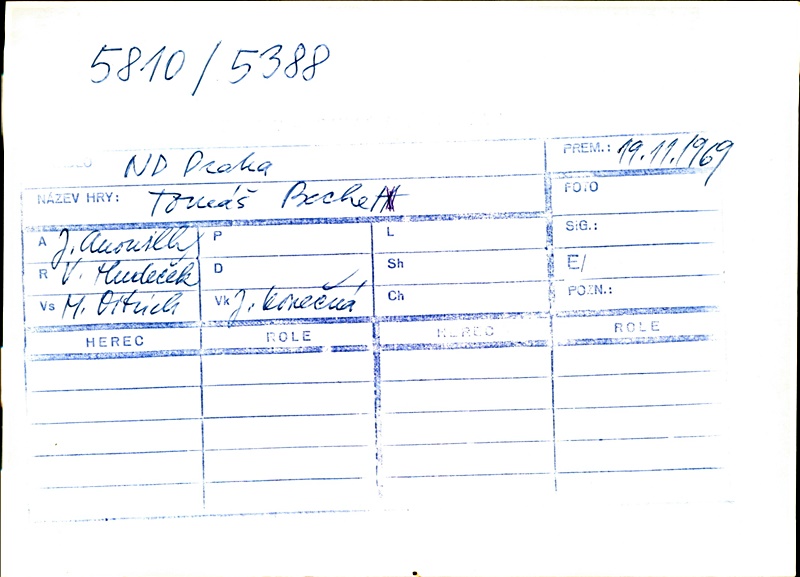 5810/5388
ND Praha
PREM.: 19.11.1969
NÁZEV HRY: Tomáš Becket
FOTO
A J. Anouilh P L SIG.:
R V. Hudeček D Sh E/
Vs M. Ditrich Vk J. Konečná Ch POZN.:
HEREC ROLE HEREC ROLE